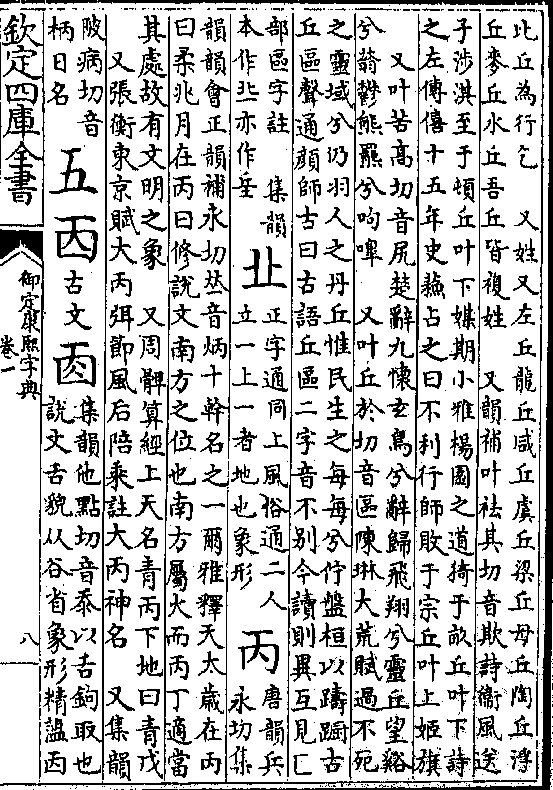 比丘為行乞　又姓又左丘龍丘咸丘虞丘梁丘母丘陶丘浮
丘麥丘水丘吾丘皆複姓　又韻補叶袪其切音欺詩衞風送
子涉淇至于頓丘叶下媒期小雅楊園之道猗于畝丘叶下詩
之左傳僖十五年史蘇占之曰不利行師敗于宗丘叶上姬旗
又叶苦高切音尻楚辭九懷玄鳥兮辭歸飛翔兮靈丘望谿
兮蓊鬱熊羆兮呴嘷　又叶丘於切音區陳琳大荒賦過不死
之靈域兮仍羽人之丹丘惟民生之每每兮佇盤桓以躊躕古
丘區聲通顔師古曰古語丘區二字音不别今讀則異互見匚
部區字註　集韻
本作丠亦作𡊣
㐀
正字通同上風俗通二人
立一上一者地也象形
丙
唐韻兵
永切集
韻韻會正韻補永切𠀤音炳十幹名之一爾雅釋天太歲在丙
曰柔兆月在丙曰修說文南方之位也南方屬火而丙丁適當
其處故有文明之象　又周髀算經上天名青丙下地曰青戊
又張衡東京賦大丙弭節風后陪乘註大丙神名　又集韻
陂病切音
柄日名
五
𠀬
古文
㐁
集韻他點切音忝以舌鉤取也
說文舌貌从谷省象形精蕰㐁
欽定四庫全書
御定康熙字典
卷一
八